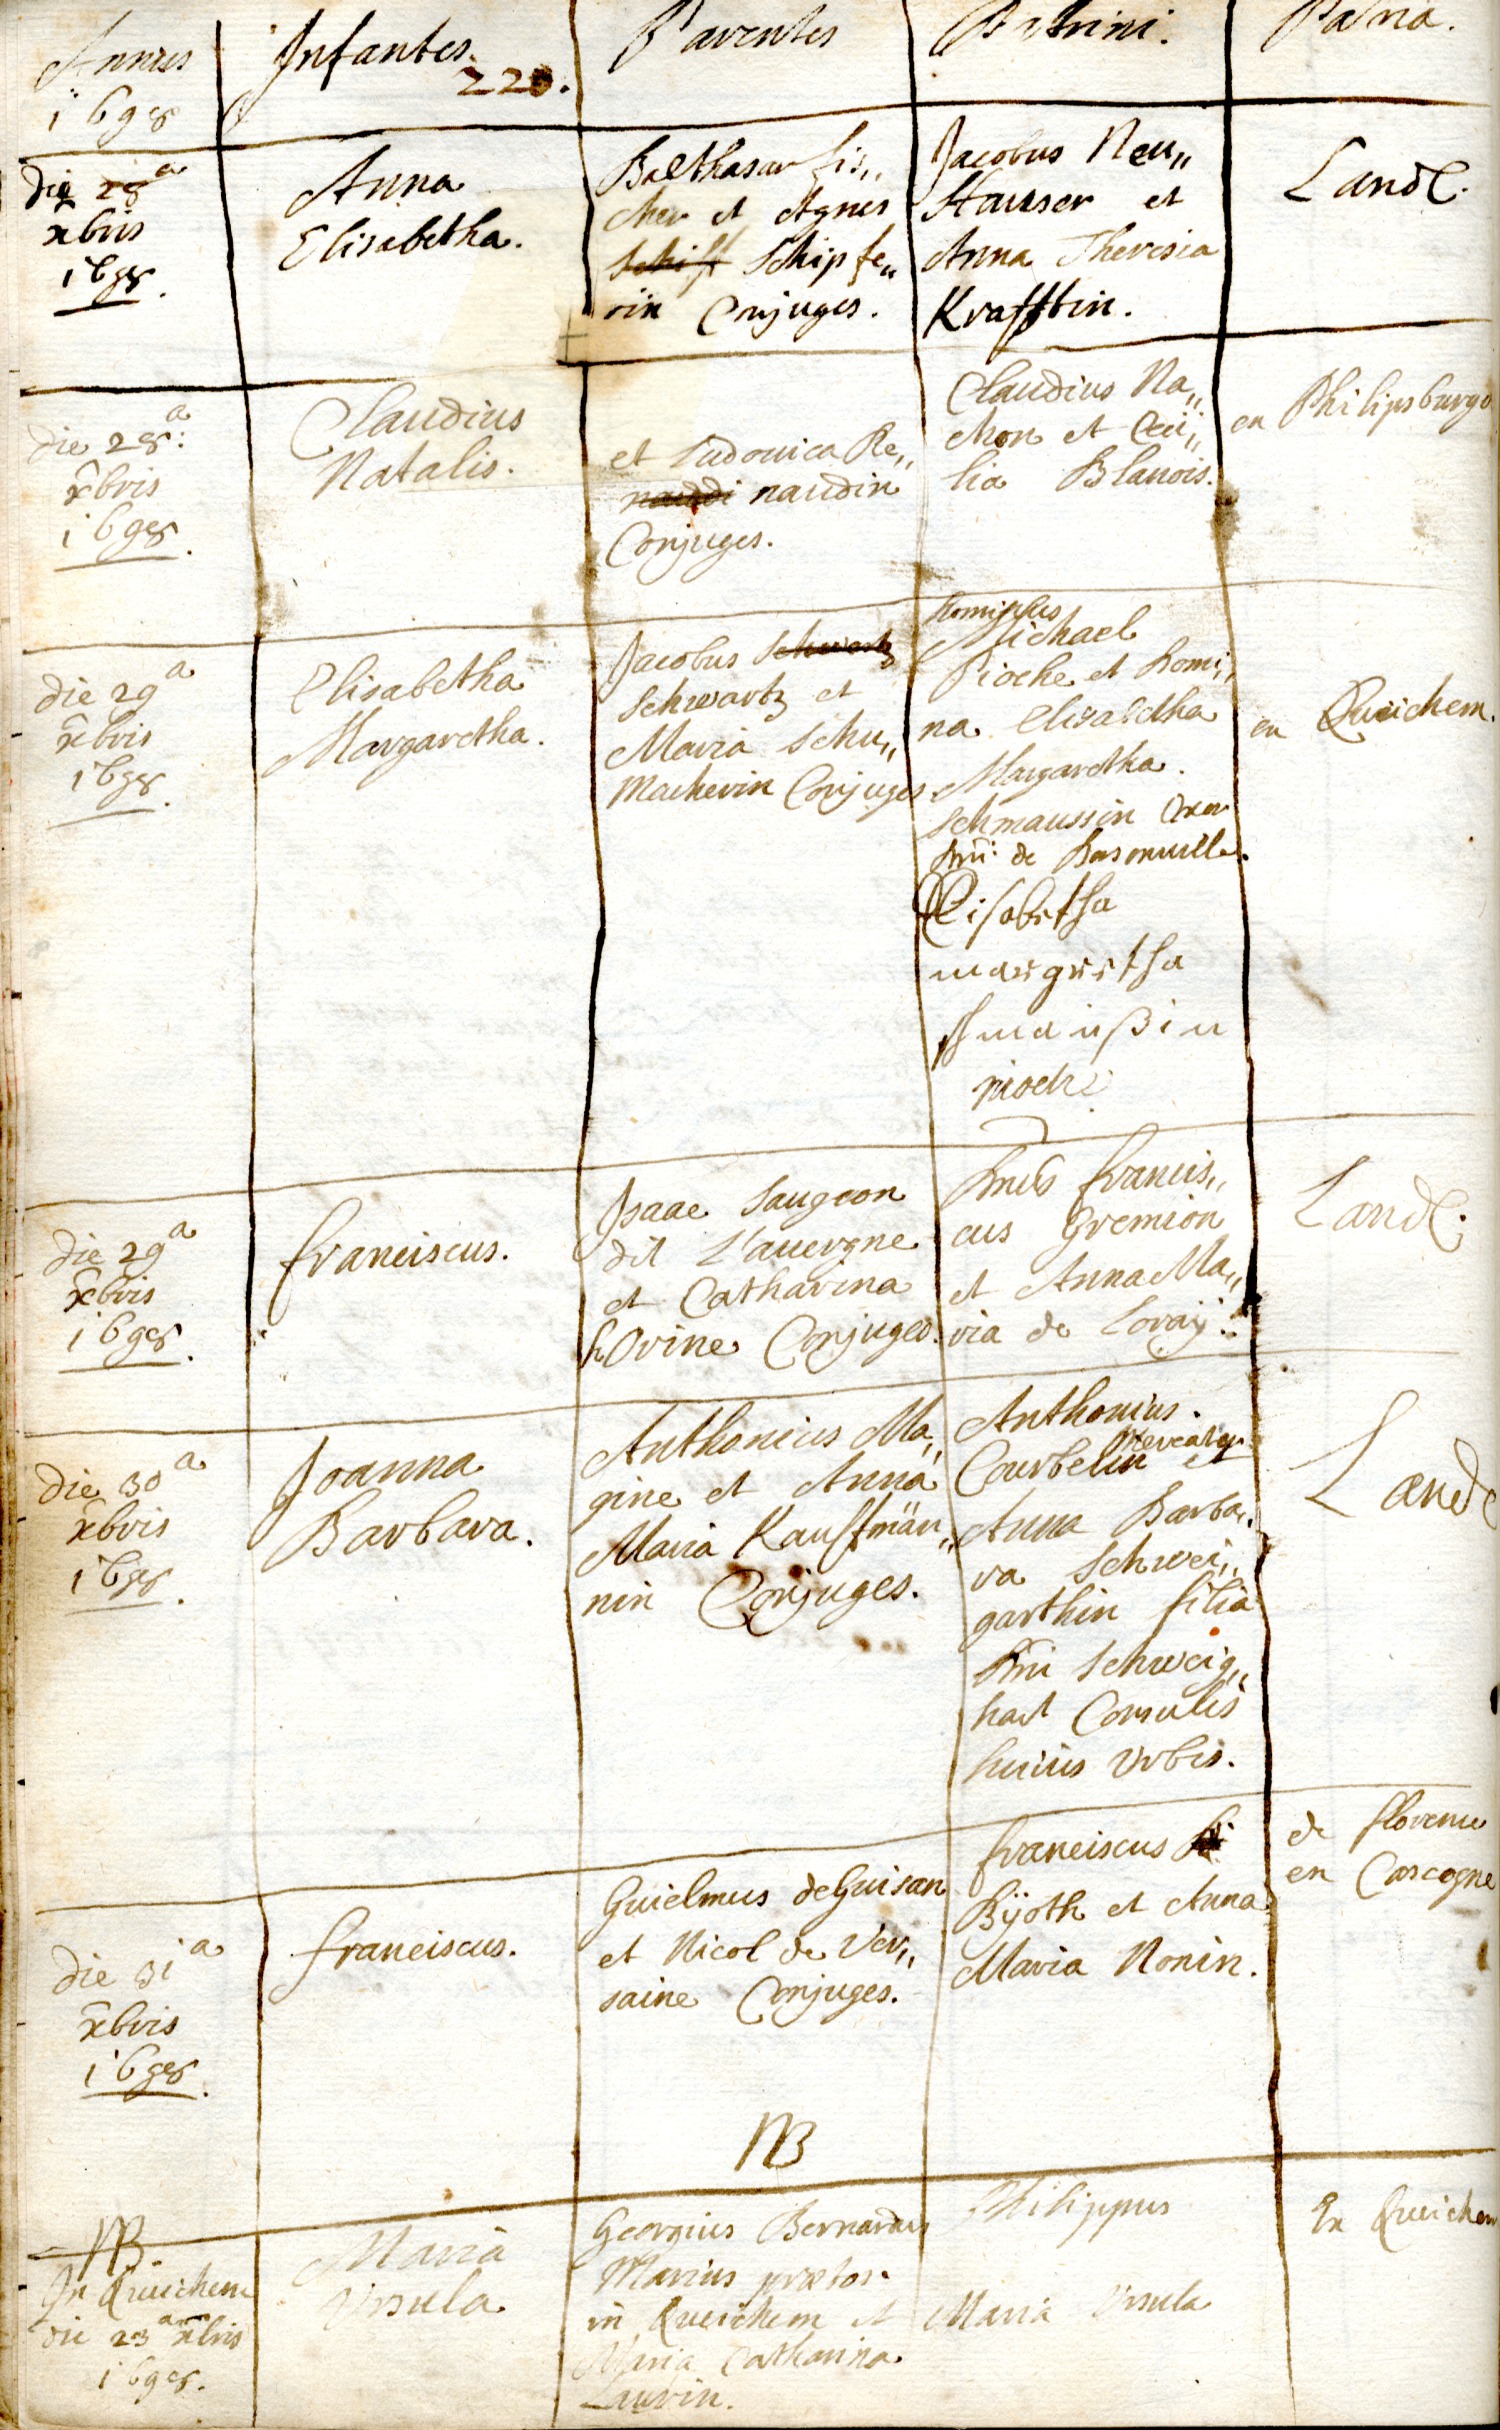 Annus
1698
Infantes.
220.
Parentes
Patrini.
Patria.
die 28a
xbris
1698.
Anna
Elisabetha.
Balthasar fis„
cher et Agnes
Schiff Schipfe„
rin Conjuges.
Jacobus Neu„
Hauser et
Anna Theresia
Krafftin.
Land.
die 28a:
xbris
1698.
Claudius
Natalis.
et Ludouica Re„
naudi naudin
Conjuges.
Claudius Na„
chon et Ceci„
lia Blanois.
ex Philipsburgo
die 29a
xbris
1698.
Elisabetha
Margaretha.
Jacobus Schwartz
Schwartz et
Maria Schu„
Macherin Conjuges
Michael
Pioche et Domi„
na Elisabetha
Margaretha.
Schmaussin Uxor
Dni: de
Elisabetha
margretha
schmaußin
pioch
ex Queichem.
die 29a
xbris
1698.
franciscus.
Isaac Saugeon
dit L'auergne
et Catharina
hOrine Conjuges.
Dnus francis„
cus Gremion
et Anna Ma„
ria de Loraij.
Land.
die 30a
xbris
1698.
Joanna
Barbara.
Anthonius Ma„
gine et Anna
Maria Kauffmän„
nin Conjuges.
Anthonius.
Mercator
Courbelin et
Anna Barba„
ra Schwei„
garthin filia
Dni Schweig„
hart Consulis
huius Urbis.
Land
die 31a
xbris
1698.
franciscus.
Guielmus deGuisan
et Nicol de Ver„
saine Conjuges.
franciscus
Bijoth et Anna
Maria Nonin.
de florence
en Cascogne
NB
NB.
In Queichem
die 23a xbris
1698.
Maria
Ursula
Georgius Bernardus
Marius prætor
in Queichem et
Maria Catharina
Laurin.
Philippus
Maria Ursula
Ex Queichem